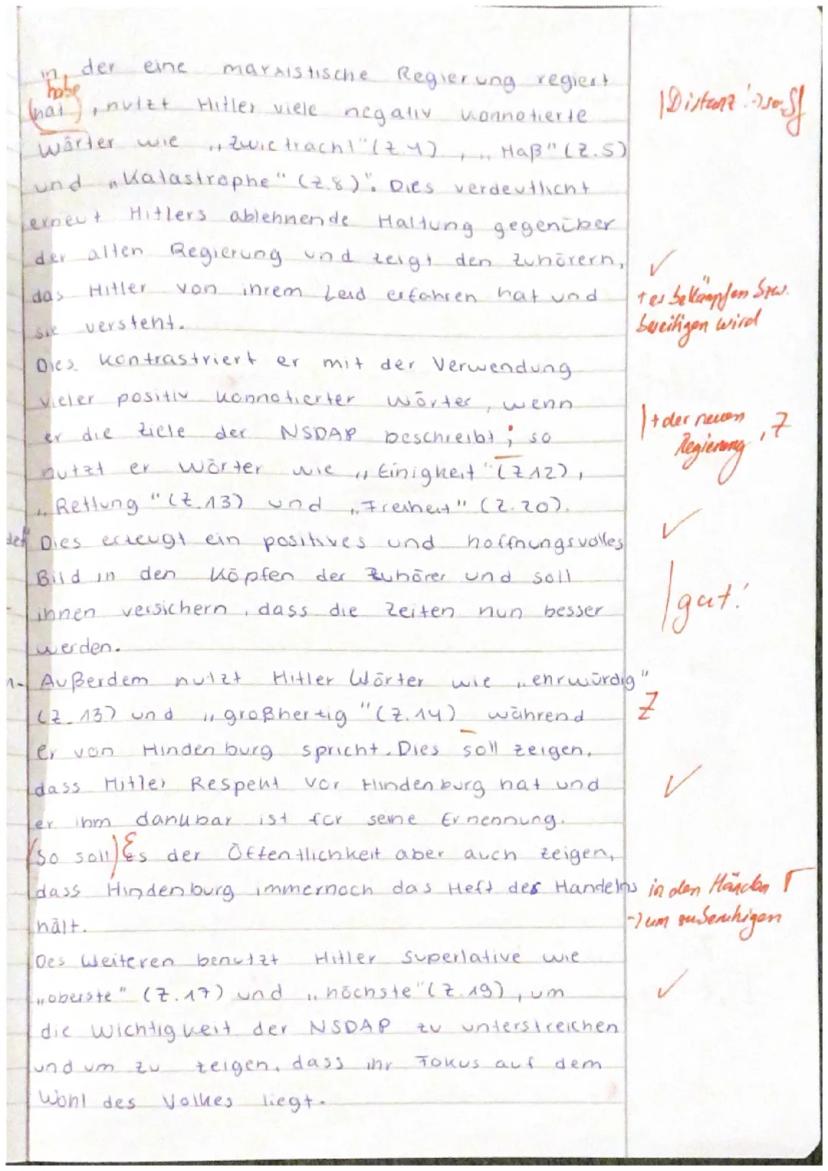 in der eine marxistische Regierung regiert
habe
(hat), nutzt Hitler viele negativ konnotierte
|Distanz! → so Sf
Wörter wie „Zwietracht" (Z.4), „Haß" (Z.5)
und „Katastrophe" (Z.8)". Dies verdeutlicht
erneut Hitlers ablehnende Haltung gegenüber
der alten Regierung und zeigt den Zuhörern, ✓
das Hitler von ihrem Leid erfahren hat und
+ es bekämpfen bzw.
beseitigen wird
sie versteht.
Dies kontrastriert er mit der Verwendung
vieler positiv konnotierter Wörter, wenn
|+ der neuen
Regierung, Z
er die Ziele der NSDAP beschreibt; so
nutzt er Wörter wie „Einigkeit" (Z.12),
„Rettung" (Z.13) und „Freiheit" (Z.20). ✓
Dies erzeugt ein positives und hoffnungsvolles
Bild in den Köpfen der Zuhörer und soll
|gut!
ihnen versichern, dass die Zeiten nun besser
werden.
Außerdem nutzt Hitler Wörter wie „ehrwürdig"
(Z.13) und „großherzig" (Z.14) während Z
er von Hindenburg spricht. Dies soll zeigen,
dass Hitler Respekt vor Hindenburg hat und ✓
er ihm dankbar ist für seine Ernennung.
(So soll) Es der Öffentlichkeit aber auch zeigen,
dass Hindenburg immernoch das Heft des Handelns in den Händen Γ
→ um zu beruhigen
hält.
Des Weiteren benutzt Hitler Superlative wie
„oberste" (Z.17) und „höchste" (Z.19), um ✓
die Wichtigkeit der NSDAP zu unterstreichen
und um zu zeigen, dass ihr Fokus auf dem
Wohl des Volkes liegt.